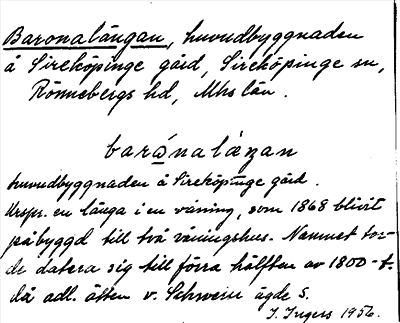 Baronalängan, huvudbyggnaden
å Sireköpinge gård, Sireköpinge sn,
Rönnebergs hd, Mhs län.
barónalàŋan
huvudbyggnaden å Sireköpinge gård.
Urspr. en länga i en våning, som 1868 blivit
påbyggd till två våningshus. Namnet tor-
de datera sig till förra hälften av 1800-t.
då adl. ätten v. Schwerin ägde S.
I. Ingers 1956.